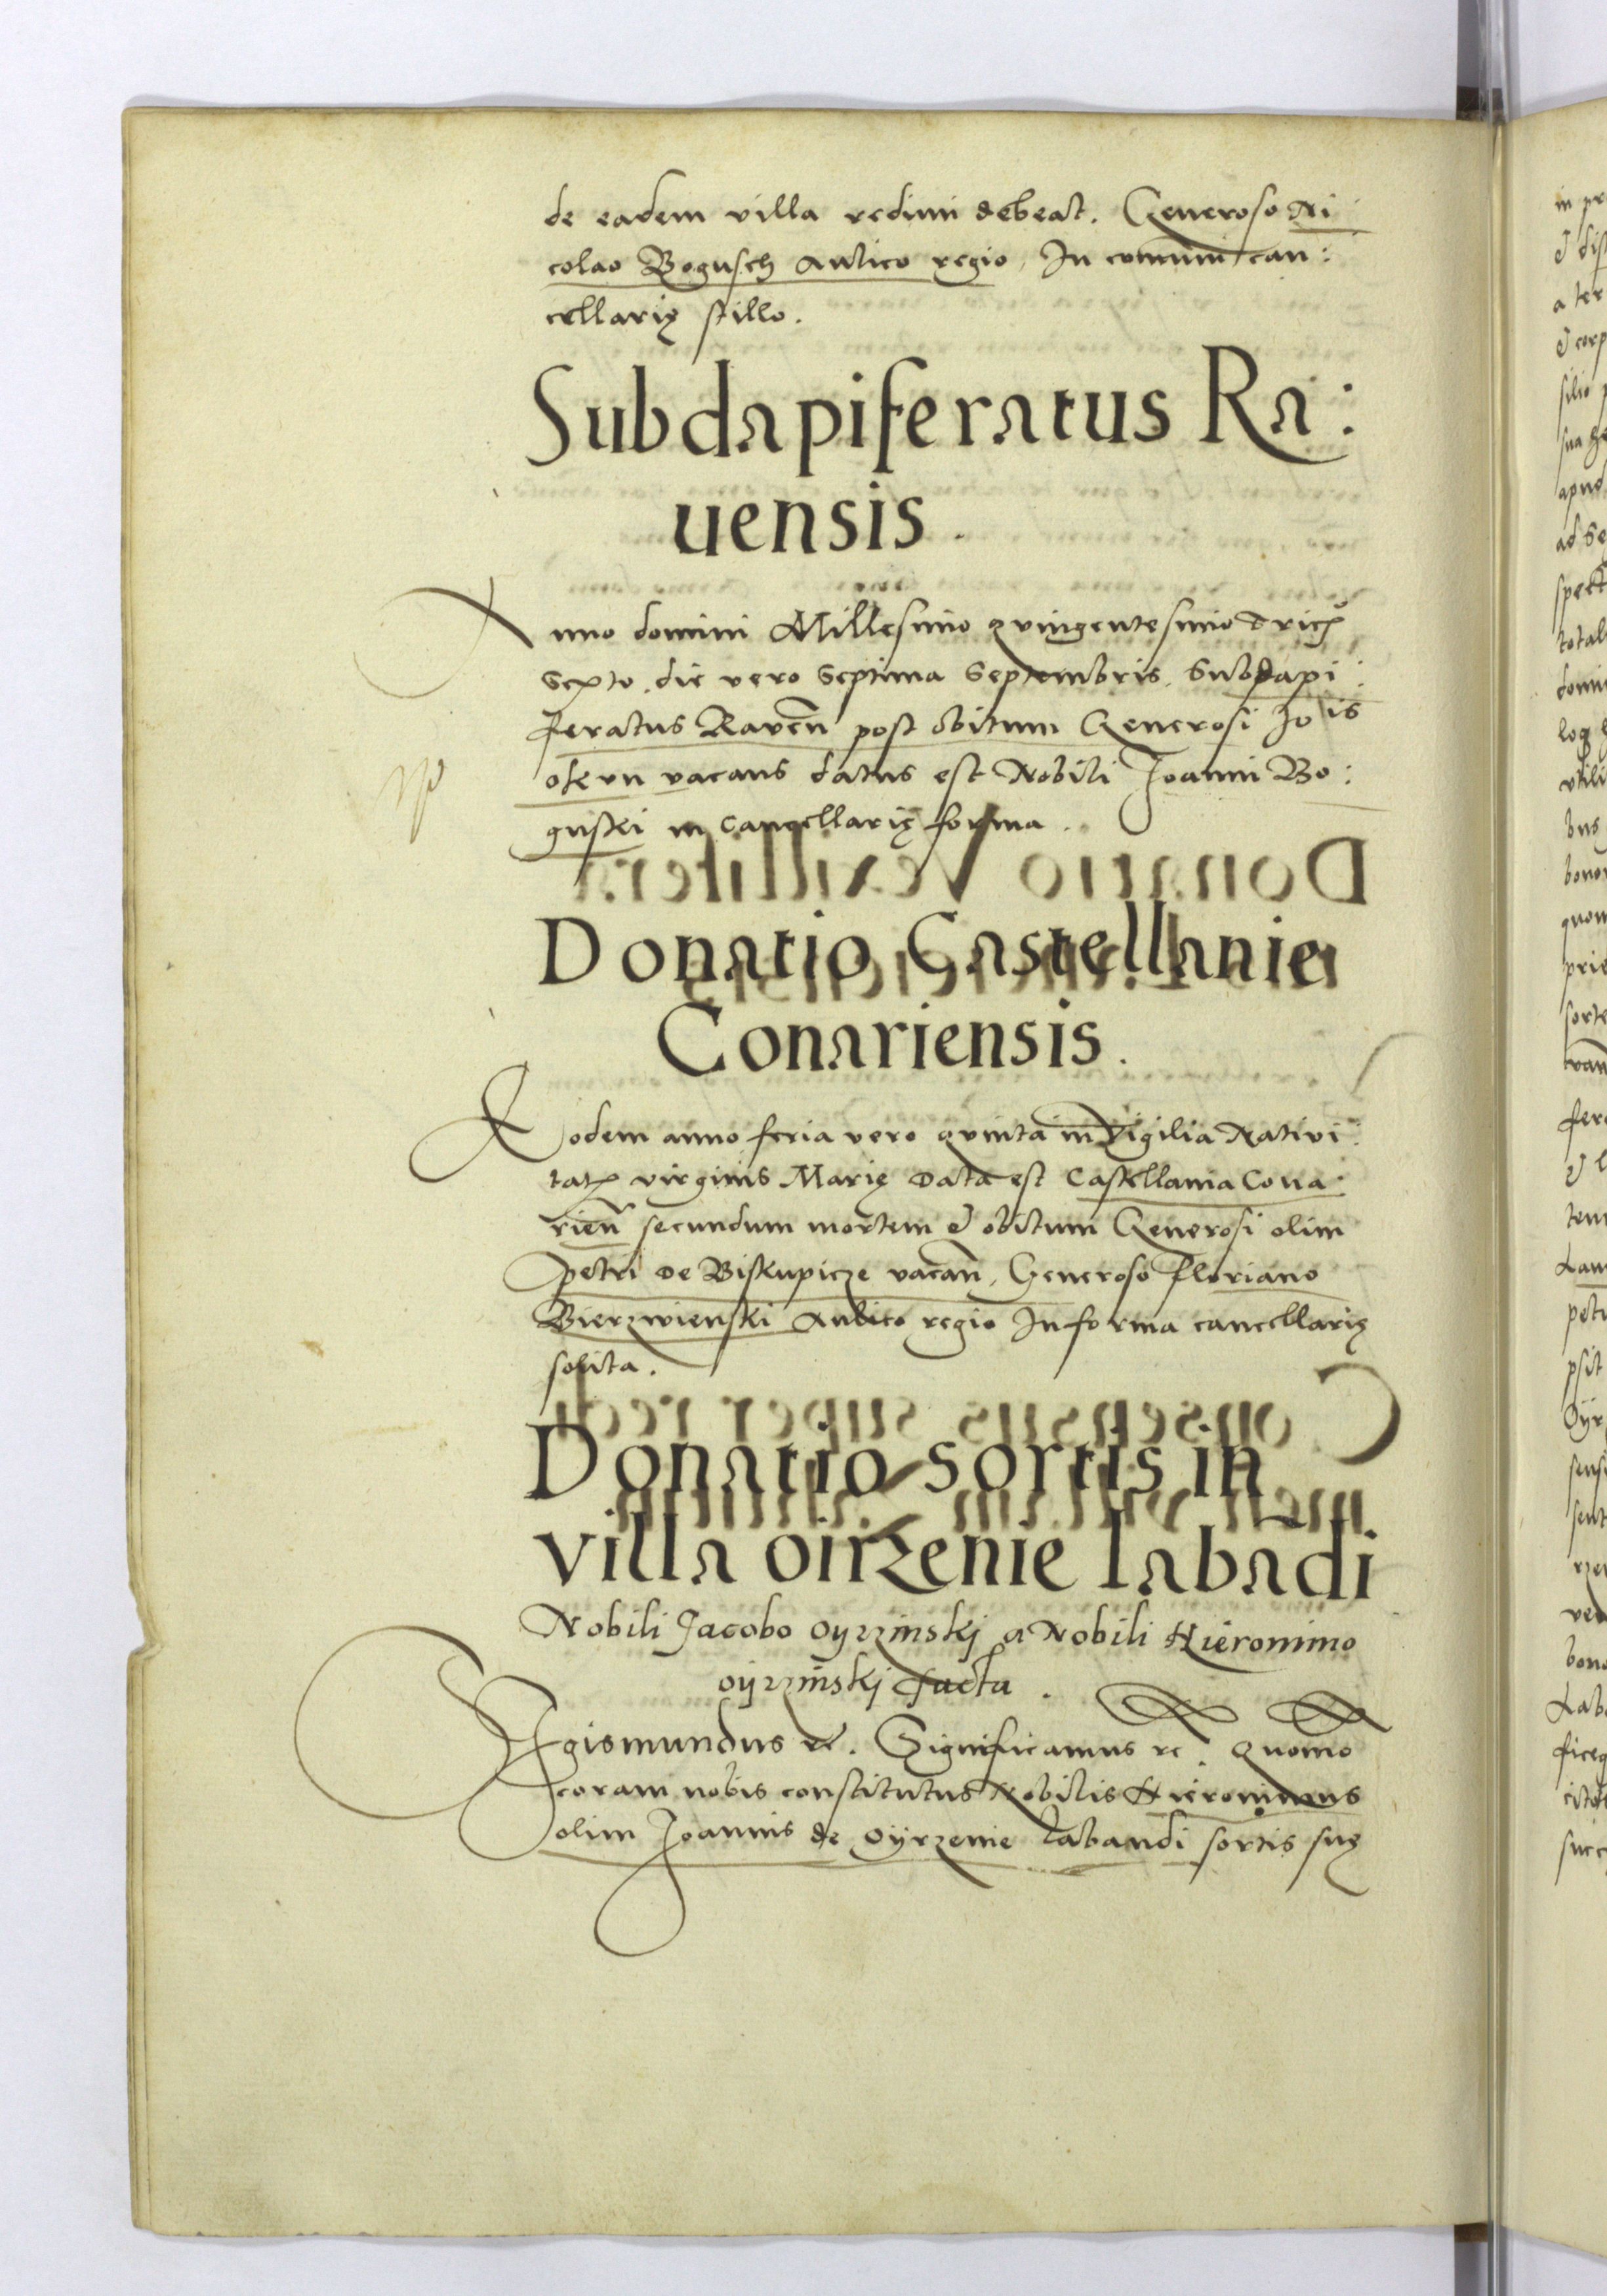 de eadem villa redimi debeat. Generoso Ni
colao Bogusch Aulico regio, In comuni can:
cellarię stillo.
Subdapiferatus Ra:
uensis.
Anno domini Millesimo quingentesimo tric̃
Sexto, die vero Septima Septembris, Subdapi:
feratus Raveñ post obitum Generosi Jo is
okvn vacans datus est Nobili Joanni Bo:
guski in Cancellarię forma.
Donatio Castellanie
Conariensis.
Eodem anno feria vero quinta in Vigilia Nativi:
tatis virginis Marię Data est Castellania Cona:
rieñ secundum mortem et obitum Generosi olim
petri de Biskupicze vacañ, Generoso floriano
Bierzwienski Aulico regio In forma cancellarię
solita.
Donatio sortis in
villa oirzenie labãdi
Nobili Jacobo oyrzinskj a Nobili Hieronimo
oyrzinskj facta.
Sigismundus etc. Significamus etc. Quomo
coram nobis constitutus Nobilis Hieronimus
olim Joannis de Oyrzenie labandi sortis suę